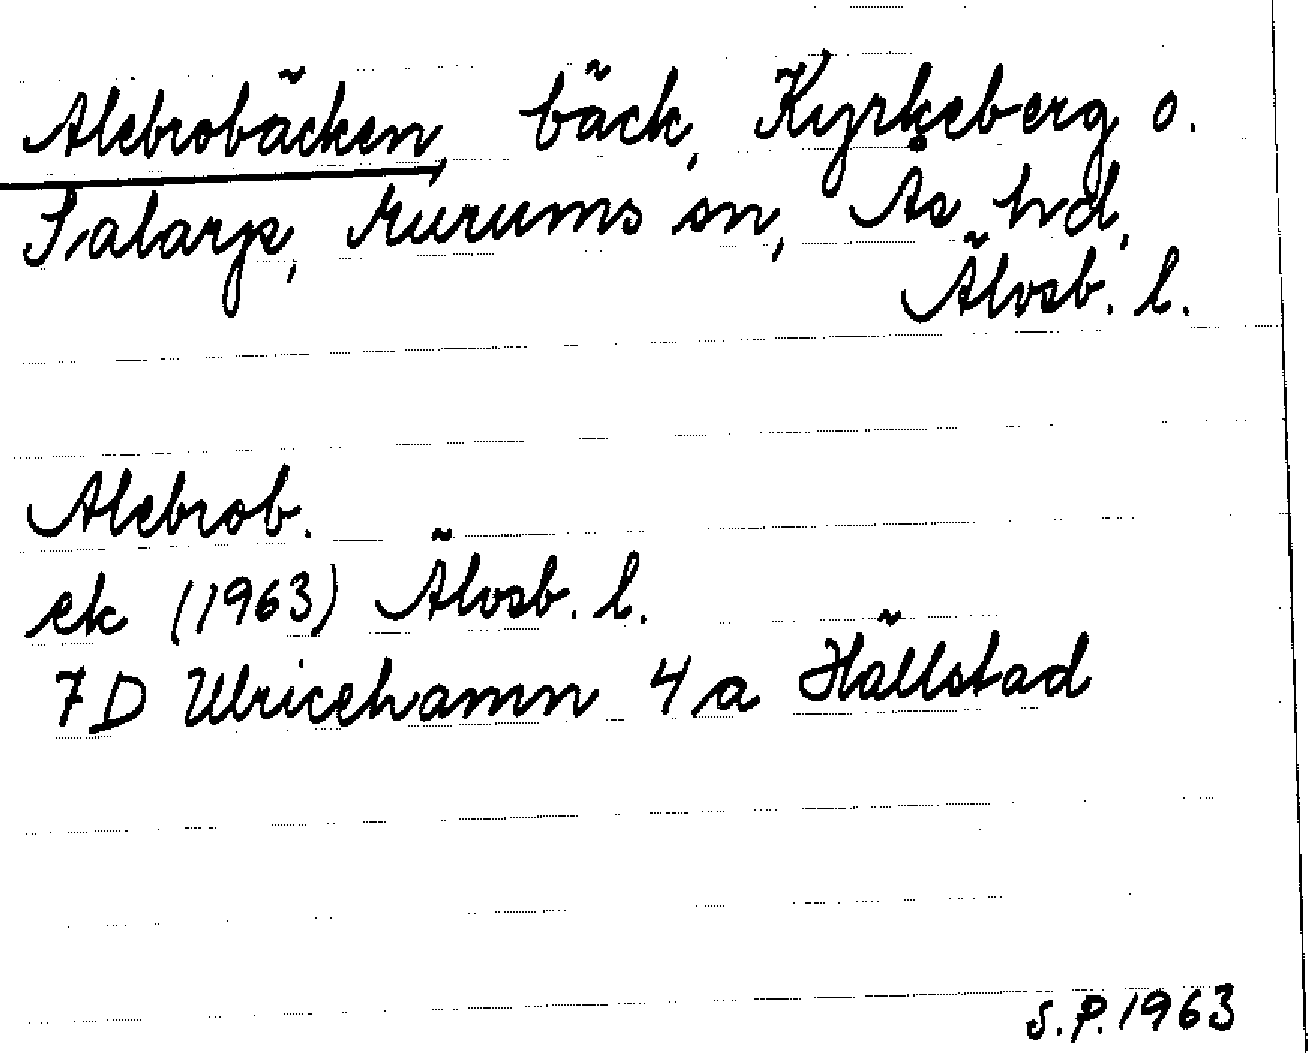 Alebrobäcken, bäck, Kyrkeberg o.
Salarp, Murums sn, Ås hd,
Älvsb. l.
Alebrob.
ek (1963) Älvsb. l.
7D Ulricehamn 4 a Hällstad
S.P. 1963